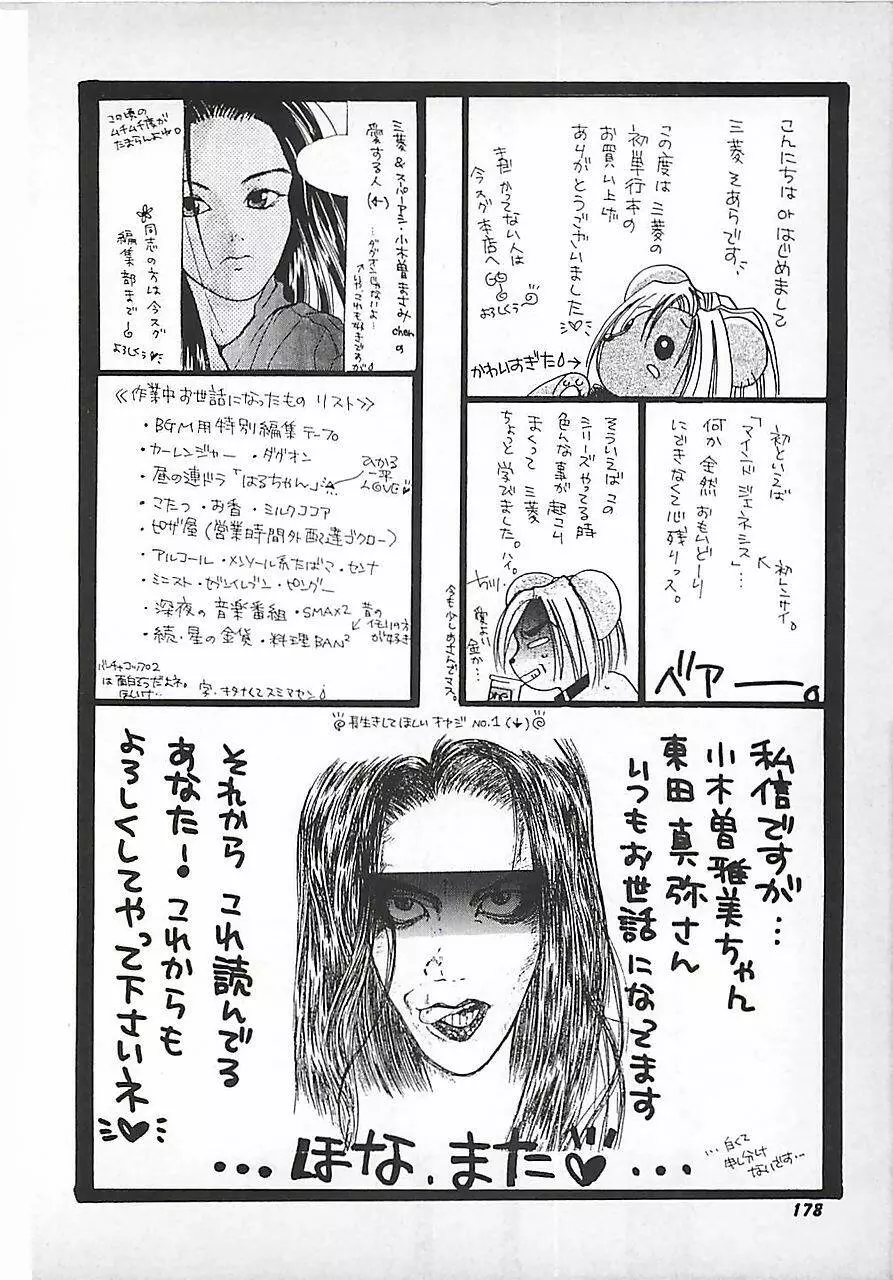 こんにちは or はじめまして
三菱 そあらです
この度は 三菱の
初単行本の
お買い上げ
ありがとうございました♡
まだ かってない人は
今スグ 本店へ GO
よろしくぅ
かわいすぎた
三菱 & スーパーアシ・小木曽まさみ chanの
愛する人(←)
…ダグオンじゃないよ…
この頃の
ムチムチ度が
たまらんよね。
同志の方は今スグ
編集部まで
よろしくぅ♡
初といえば
「マインド ジェネシス」…
初レンサイ。
何か 全然 おもいどーり
にできなくて心残りっス。
そういえば この
シリーズやってる時
色んな事が 起こり
まくって 三菱
ちょっと 学びました。ハイ。
今も少し めさんでマス。
ベアー。
≪作業中お世話になったもの リスト≫
・BGM用特別編集テープ
・カーレンジャー ・ダグオン
・昼の連ドラ「はるちゃん」
ひかる
一平
LOVE♡
・こたつ ・お香 ・ミルクココア
・ピザ屋(営業時間外配達ゴクロー)
・アルコール・メンソール系たばこ・センナ
・ミニスト・セブンイレブン・ピングー
・深夜の音楽番組・SMAX2
・続・星の金貨・料理BAN²
昔の
イモリの方
が好き
バーチャコップ02
は面白そうだよネ。
ほしいけ…
字・キタナくてスミマセン
長生きしてほしい オヤジ NO.1(↓)
私信ですが…
小木曽雅美ちゃん
東田真弥さん
いつもお世話になってます
それから これ読んでる
あなた!これからも
よろしくしてやって下さいネ♡
…ほな、また♡…
…白くて
申し分け
ないです…
178